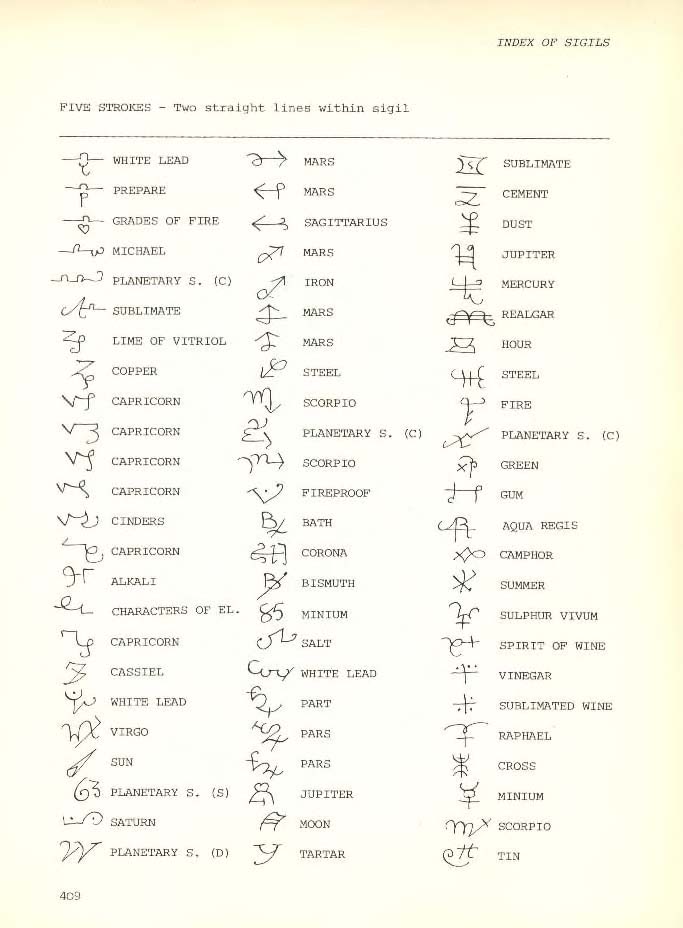 INDEX OF SIGILS
FIVE STROKES - Two straight lines within sigil
WHITE LEAD
PREPARE
GRADES OF FIRE
MICHAEL
PLANETARY S. (C)
SUBLIMATE
LIME OF VITRIOL
COPPER
CAPRICORN
CAPRICORN
CAPRICORN
CAPRICORN
CINDERS
CAPRICORN
ALKALI
CHARACTERS OF EL.
CAPRICORN
CASSIEL
WHITE LEAD
VIRGO
SUN
PLANETARY S. (S)
SATURN
PLANETARY S. (D)
MARS
MARS
SAGITTARIUS
MARS
IRON
MARS
MARS
STEEL
SCORPIO
PLANETARY S. (C)
SCORPIO
FIREPROOF
BATH
CORONA
BISMUTH
MINIUM
SALT
WHITE LEAD
PART
PARS
PARS
JUPITER
MOON
TARTAR
SUBLIMATE
CEMENT
DUST
JUPITER
MERCURY
REALGAR
HOUR
STEEL
FIRE
PLANETARY S. (C)
GREEN
GUM
AQUA REGIS
CAMPHOR
SUMMER
SULPHUR VIVUM
SPIRIT OF WINE
VINEGAR
SUBLIMATED WINE
RAPHAEL
CROSS
MINIUM
SCORPIO
TIN
409